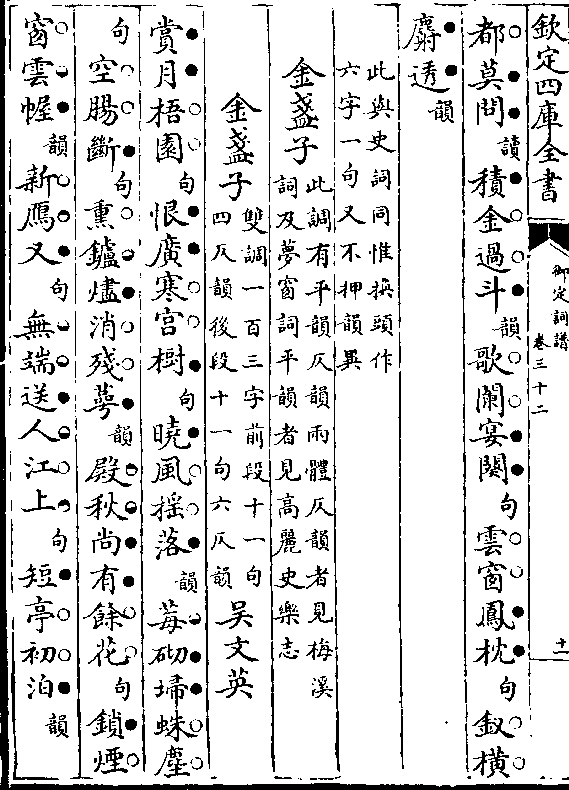 欽定四庫全書
御定詞譜
卷三十二
十一
都莫問讀積金過斗韻歌闌宴闋句雲窗鳳枕句釵橫
麝透韻
此與史詞同惟換頭作
六字一句又不押韻異
金盞子此調有平韻仄韻兩體仄韻者見梅溪
詞及夢窗詞平韻者見高麗史樂志
金盞子雙調一百三字前段十一句
四仄韻後段十一句六仄韻吳文英
賞月梧園句恨廣寒宮樹句曉風搖落韻莓砌埽蛛塵
句空腸斷句熏鑪燼消殘萼韻殿秋尚有餘花句鎖煙
窗雲幄韻新鴈又句無端送人江上句短亭初泊韻